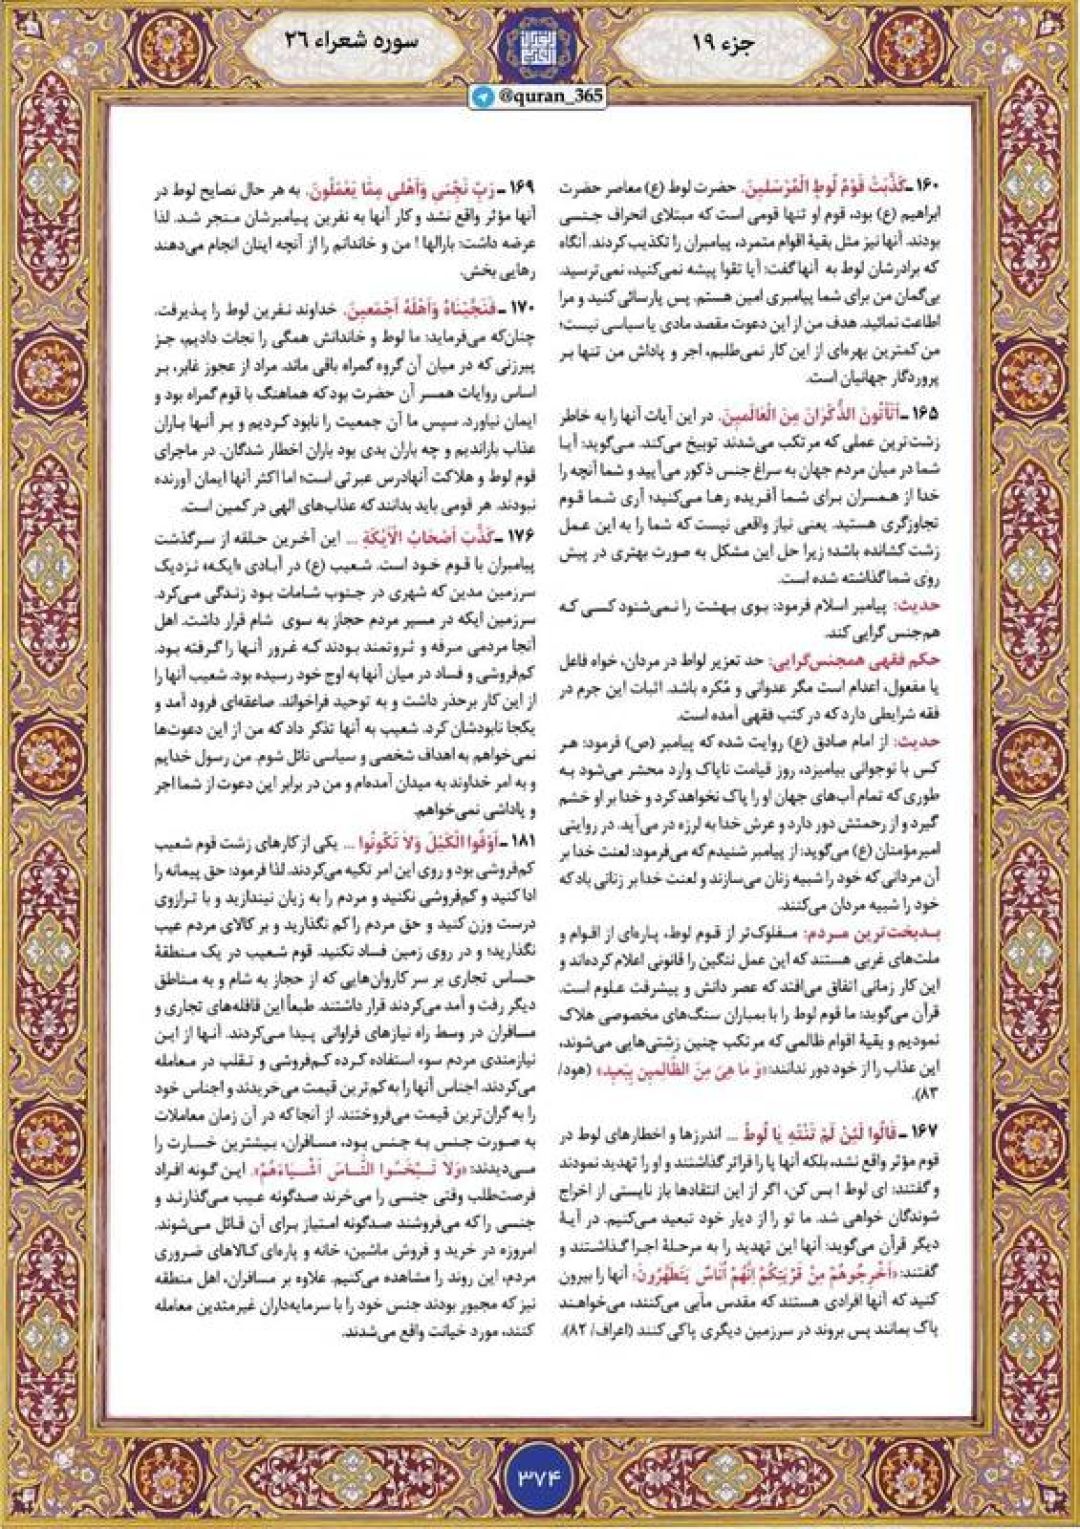 جزء ۱۹
سوره شعراء ۲۶
@quran_365
۱۶۰ ـ کَذَّبَتْ قَوْمُ لُوطٍ الْمُرْسَلِینَ. حضرت لوط (ع) معاصر حضرت
ابراهیم (ع) بود، قوم او تنها قومی است که مبتلای انحراف جنسی
بودند. آنها نیز مثل بقیهٔ اقوام متمرد، پیامبران را تکذیب کردند. آنگاه
که برادرشان لوط به آنها گفت: آیا تقوا پیشه نمی‌کنید، نمی‌ترسید.
بی‌گمان من برای شما پیامبری امین هستم. پس پارسائی کنید و مرا
اطاعت نمائید. هدف من از این دعوت مقصد مادی یا سیاسی نیست؛
من کمترین بهره‌ای از این کار نمی‌طلبم، اجر و پاداش من تنها بر
پروردگار جهانیان است.
۱۶۵ ـ أَتَأْتُونَ الذُّکْرَانَ مِنَ الْعَالَمِینَ. در این آیات آنها را به خاطر
زشت‌ترین عملی که مرتکب می‌شدند توبیخ می‌کند. می‌گوید: آیا
شما در میان مردم جهان به سراغ جنس ذکور می‌آیید و شما آنچه را
خدا از همسران برای شما آفریده رها می‌کنید؛ آری شما قوم
تجاوزگری هستید. یعنی نیاز واقعی نیست که شما را به این عمل
زشت کشانده باشد؛ زیرا حل این مشکل به صورت بهتری در پیش
روی شما گذاشته شده است.
حدیث: پیامبر اسلام فرمود: بوی بهشت را نمی‌شنود کسی که
هم‌جنس گرایی کند.
حکم فقهی همجنس‌گرایی: حد تعزیر لواط در مردان، خواه فاعل
یا مفعول، اعدام است مگر عدوانی و مُکره باشد. اثبات این جرم در
فقه شرایطی دارد که در کتب فقهی آمده است.
حدیث: از امام صادق (ع) روایت شده که پیامبر (ص) فرمود: هر
کس با نوجوانی بیامیزد، روز قیامت ناپاک وارد محشر می‌شود به
طوری که تمام آب‌های جهان او را پاک نخواهد کرد و خدا بر او خشم
گیرد و از رحمتش دور دارد و عرش خدا به لرزه در می‌آید. در روایتی
امیرمؤمنان (ع) می‌گوید: از پیامبر شنیدم که می‌فرمود: لعنت خدا بر
آن مردانی که خود را شبیه زنان می‌سازند و لعنت خدا بر زنانی باد که
خود را شبیه مردان می‌کنند.
بدبخت‌ترین مردم: مفلوک‌تر از قوم لوط، پاره‌ای از اقوام و
ملت‌های غربی هستند که این عمل ننگین را قانونی اعلام کرده‌اند و
این کار زمانی اتفاق می‌افتد که عصر دانش و پیشرفت علوم است.
قرآن می‌گوید: ما قوم لوط را با بمباران سنگ‌های مخصوصی هلاک
نمودیم و بقیهٔ اقوام ظالمی که مرتکب چنین زشتی‌هایی می‌شوند،
این عذاب را از خود دور ندانند: «وَ مَا هِیَ مِنَ الظَّالِمِینَ بِبَعِیدٍ» (هود/
۸۳).
۱۶۷ ـ قَالُوا لَئِنْ لَمْ تَنْتَهِ یَا لُوطُ ... اندرزها و اخطارهای لوط در
قوم مؤثر واقع نشد، بلکه آنها پا را فراتر گذاشتند و او را تهدید نمودند
و گفتند: ای لوط ! بس کن، اگر از این انتقادها باز نایستی از اخراج
شوندگان خواهی شد. ما تو را از دیار خود تبعید می‌کنیم. در آیهٔ
دیگر قرآن می‌گوید: آنها این تهدید را به مرحلهٔ اجرا گذاشتند و
گفتند: «أَخْرِجُوهُمْ مِنْ قَرْیَتِکُمْ إِنَّهُمْ أُنَاسٌ یَتَطَهَّرُونَ» آنها را بیرون
کنید که آنها افرادی هستند که مقدس مآبی می‌کنند، می‌خواهند
پاک بمانند پس بروند در سرزمین دیگری پاکی کنند (اعراف/ ۸۲).
۱۶۹ ـ رَبِّ نَجِّنِی وَأَهْلِی مِمَّا یَعْمَلُونَ. به هر حال نصایح لوط در
آنها مؤثر واقع نشد و کار آنها به نفرین پیامبرشان منجر شد. لذا
عرضه داشت: بارالها ! من و خاندانم را از آنچه اینان انجام می‌دهند
رهایی بخش.
۱۷۰ ـ فَنَجَّیْنَاهُ وَأَهْلَهُ أَجْمَعِینَ. خداوند نفرین لوط را پذیرفت.
چنان‌که می‌فرماید: ما لوط و خاندانش همگی را نجات دادیم، جز
پیرزنی که در میان آن گروه گمراه باقی ماند. مراد از عجوز غابر، بر
اساس روایات همسر آن حضرت بود که هماهنگ با قوم گمراه بود و
ایمان نیاورد. سپس ما آن جمعیت را نابود کردیم و بر آنها باران
عذاب باراندیم و چه باران بدی بود باران اخطار شدگان. در ماجرای
قوم لوط و هلاکت آنها درس عبرتی است؛ اما اکثر آنها ایمان آورنده
نبودند. هر قومی باید بدانند که عذاب‌های الهی در کمین است.
۱۷۶ ـ کَذَّبَ أَصْحَابُ الْأَیْکَةِ ... این آخرین حلقه از سرگذشت
پیامبران با قوم خود است. شعیب (ع) در آبادی «ایکه» نزدیک
سرزمین مدین که شهری در جنوب شامات بود زندگی می‌کرد.
سرزمین ایکه در مسیر مردم حجاز به سوی شام قرار داشت. اهل
آنجا مردمی مرفه و ثروتمند بودند که غرور آنها را گرفته بود.
کم‌فروشی و فساد در میان آنها به اوج خود رسیده بود. شعیب آنها را
از این کار برحذر داشت و به توحید فراخواند. صاعقه‌ای فرود آمد و
یکجا نابودشان کرد. شعیب به آنها تذکر داد که من از این دعوت‌ها
نمی‌خواهم به اهداف شخصی و سیاسی نائل شوم. من رسول خدایم
و به امر خداوند به میدان آمده‌ام و من در برابر این دعوت از شما اجر
و پاداشی نمی‌خواهم.
۱۸۱ ـ أَوْفُوا الْکَیْلَ وَلاَ تَکُونُوا ... یکی از کارهای زشت قوم شعیب
کم‌فروشی بود و روی این امر تکیه می‌کردند. لذا فرمود: حق پیمانه را
ادا کنید و کم‌فروشی نکنید و مردم را به زیان نیندازید و با ترازوی
درست وزن کنید و حق مردم را کم نگذارید و بر کالای مردم عیب
نگذارید؛ و در روی زمین فساد نکنید. قوم شعیب در یک منطقهٔ
حساس تجاری بر سر کاروان‌هایی که از حجاز به شام و به مناطق
دیگر رفت و آمد می‌کردند قرار داشتند. طبعاً این قافله‌های تجاری و
مسافران در وسط راه نیازهای فراوانی پیدا می‌کردند. آنها از این
نیازمندی مردم سوء استفاده کرده کم‌فروشی و تقلب در معامله
می‌کردند. اجناس آنها را به کم‌ترین قیمت می‌خریدند و اجناس خود
را به گران‌ترین قیمت می‌فروختند. از آنجا که در آن زمان معاملات
به صورت جنس به جنس بود، مسافران، بیشترین خسارت را
می‌دیدند: «وَلاَ تَبْخَسُوا النَّاسَ أَشْیَاءَهُمْ». این گونه افراد
فرصت‌طلب وقتی جنسی را می‌خرند صدگونه عیب می‌گذارند و
جنسی را که می‌فروشند صدگونه امتیاز برای آن قائل می‌شوند.
امروزه در خرید و فروش ماشین، خانه و پاره‌ای کالاهای ضروری
مردم، این روند را مشاهده می‌کنیم. علاوه بر مسافران، اهل منطقه
نیز که مجبور بودند جنس خود را با سرمایه‌داران غیرمتدین معامله
کنند، مورد خیانت واقع می‌شدند.
۳۷۴